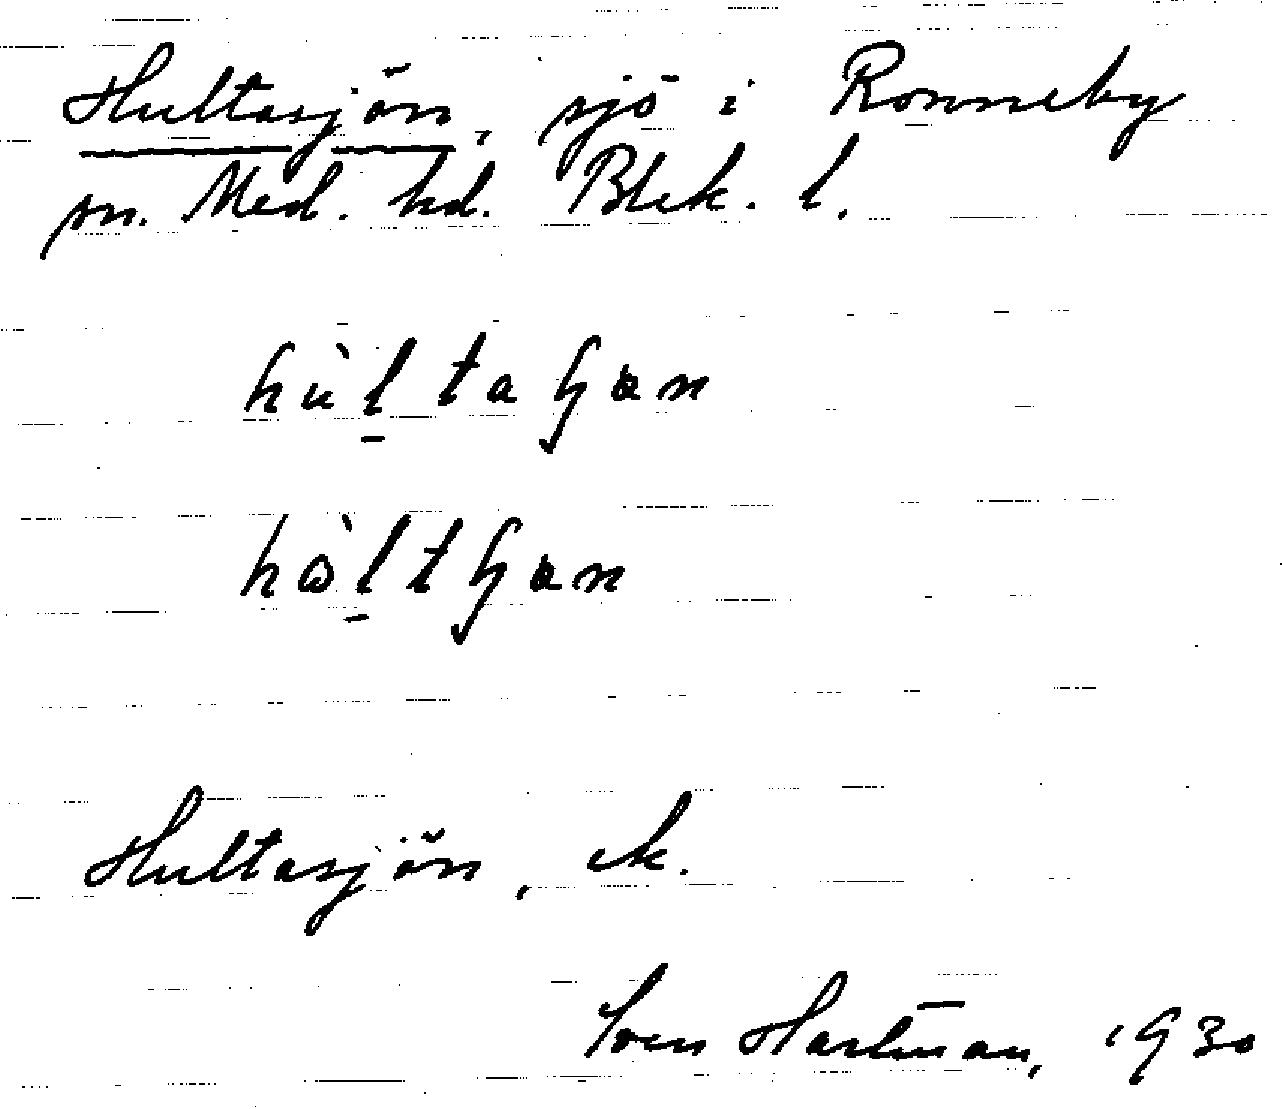 Hultasjön, sjö i Ronneby
sn. Med. hd. Blek. l.
hùl̠taɧɵn
hòl̠tɧɵn
Hultasjön, ek.
Sven Hartman, 1930